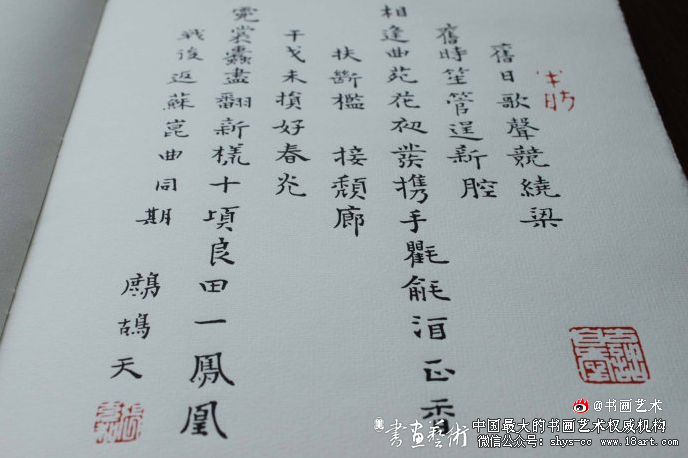 舊日歌聲競繞梁
舊時笙管逞新腔
相逢曲苑花初發携手氍毹酒正香
扶斷檻 接頹廊
干戈未損好春光
霓裳蠹盡翻新樣十頃良田一鳳凰
戰後返蘇崑曲同期 鷓鴣天
@书画艺术
書画藝術
中国最大的书画艺术权威机构
微信公众号: shys-cc www.18art.com